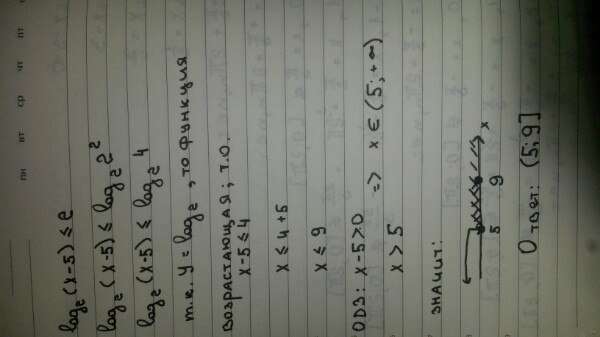 пн вт ср чт пт
log₂(x-5)≤2
log₂(x-5)≤log₂2²
log₂(x-5)≤log₂4
т.к. y=log₂, то функция
возрастающая; т.о.
x-5≤4
x≤4+5
x≤9
ОДЗ: x-5>0 => x∈(5;+∞)
x>5
значит:
5 9 x
Ответ: (5;9]